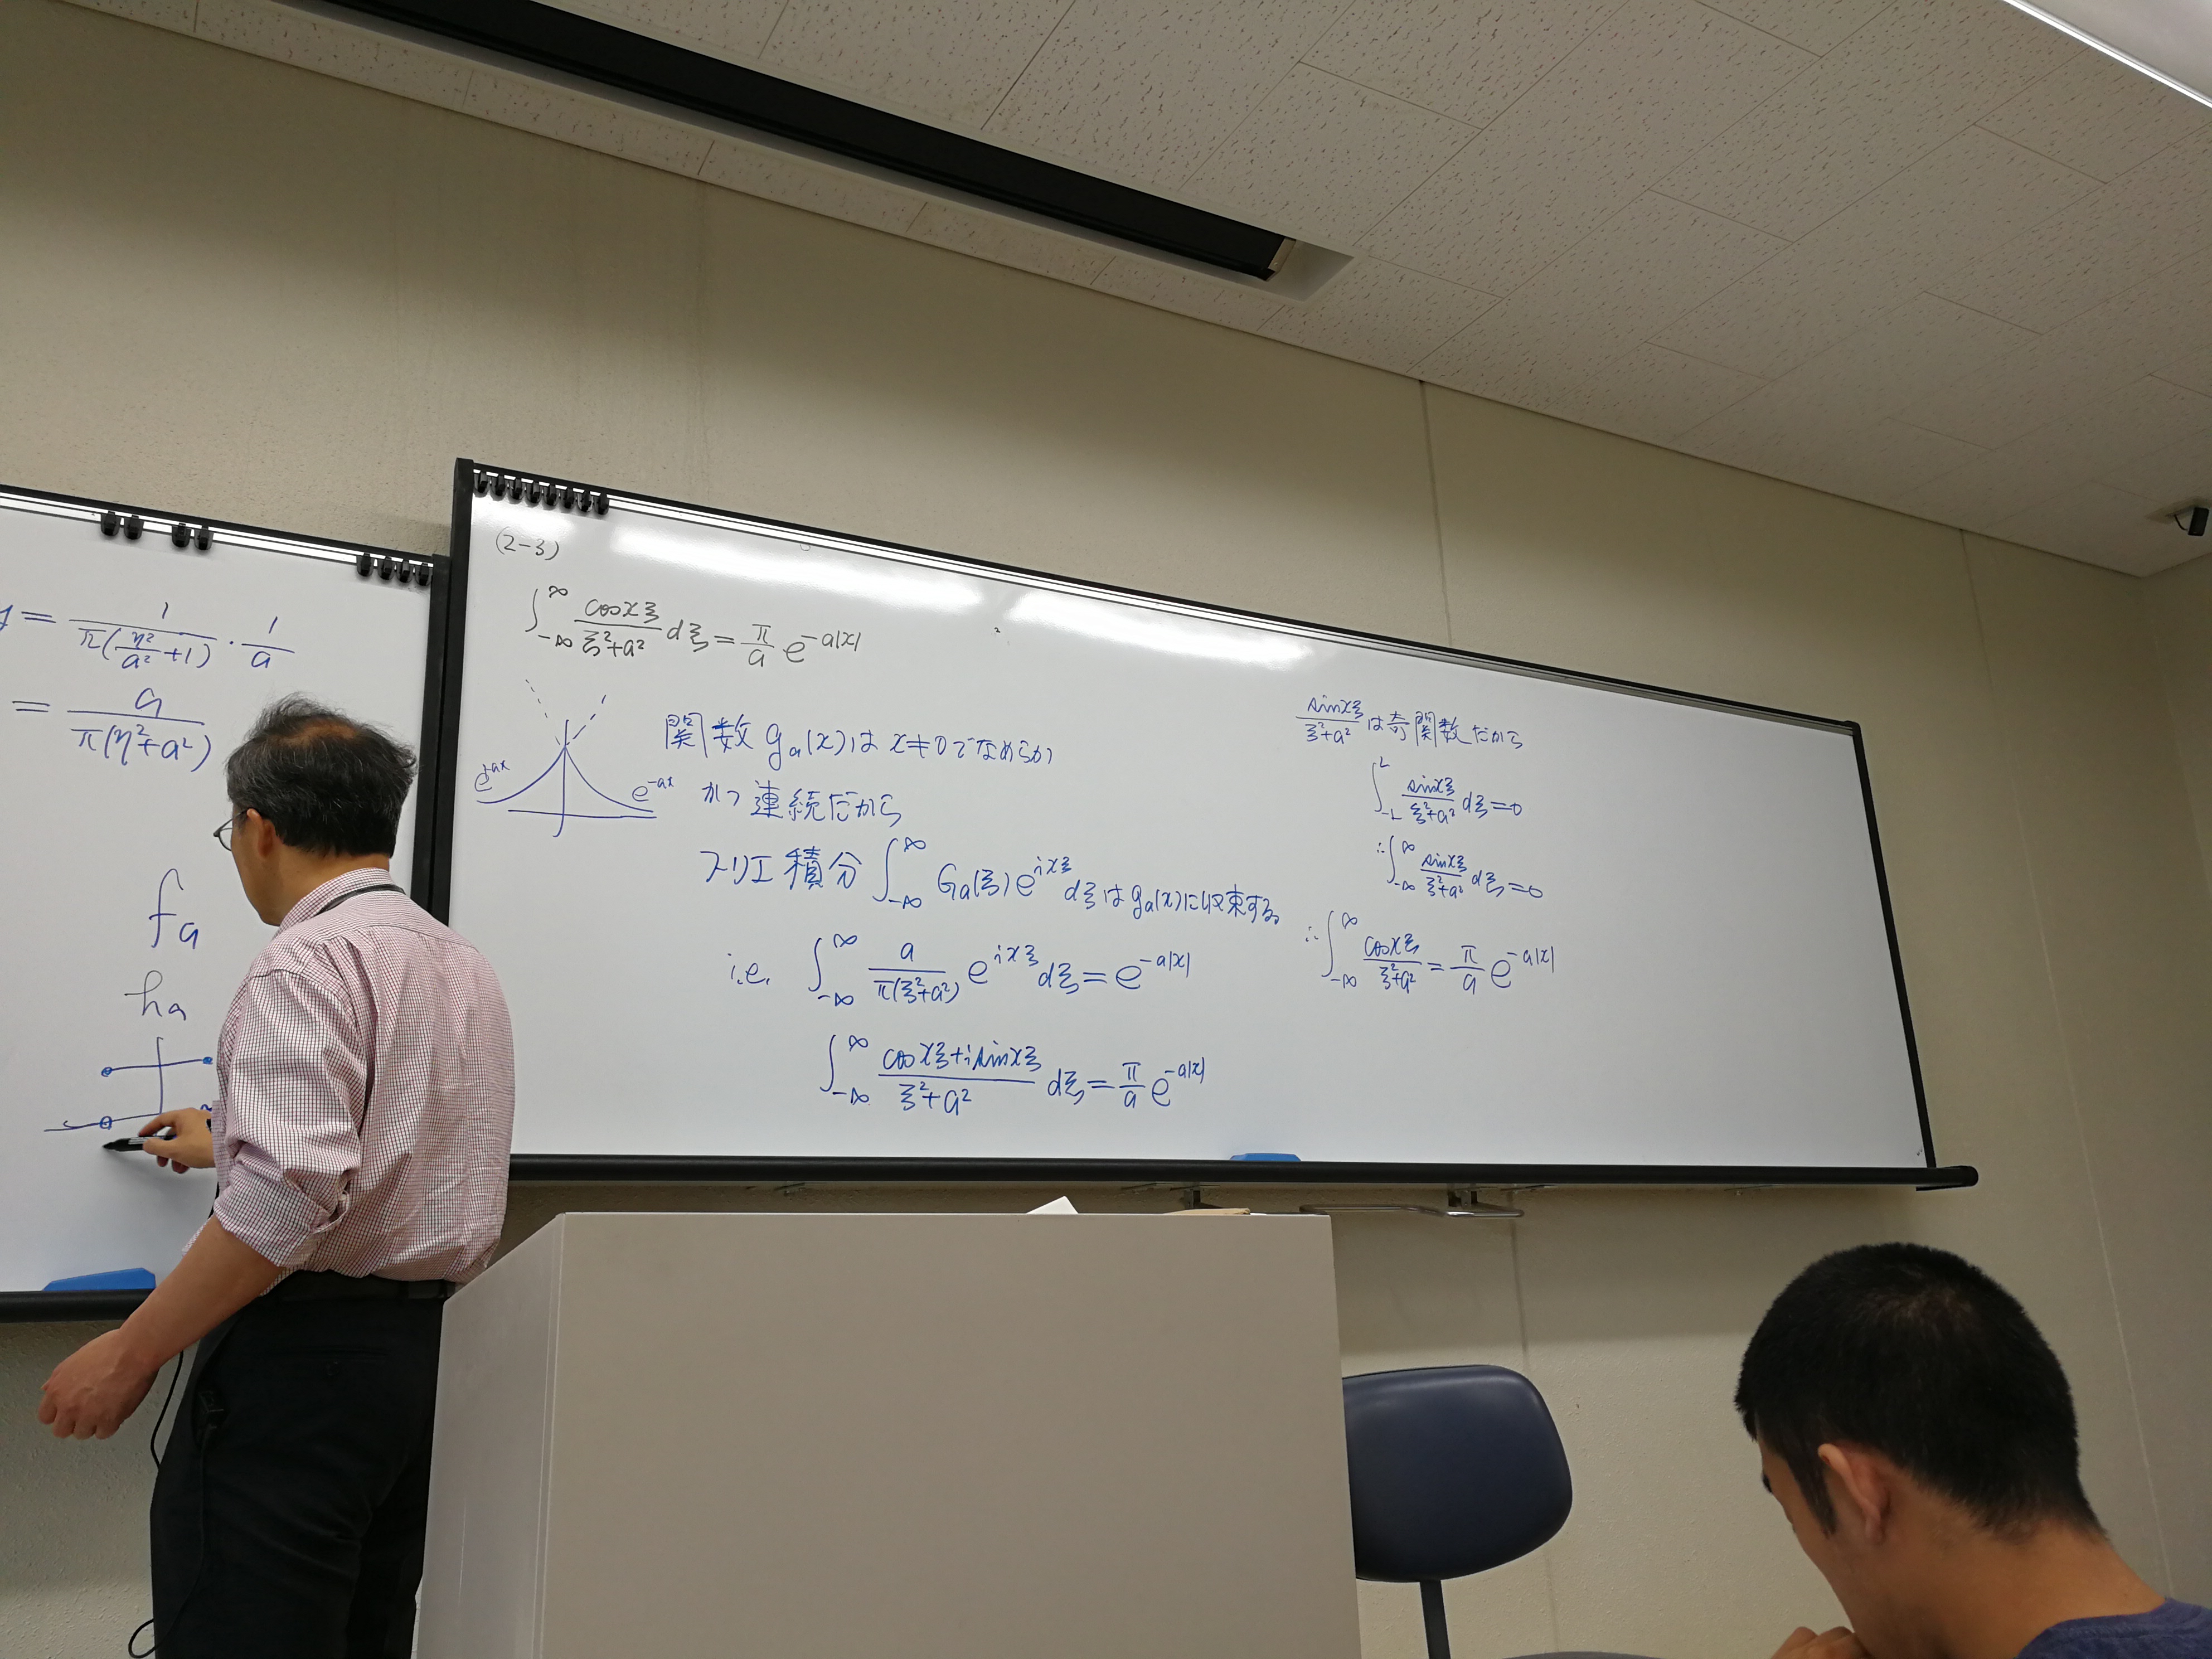 = 1/(π(η²/a²+1)) · 1/a
= a/(π(η²+a²))
fa
ha
(2-3)
∫_{-∞}^{∞} cosxξ/(ξ²+a²) dξ = π/a e^{-a|x|}
e^{ax}
e^{-ax}
関数 g_a(x)は x≠0でなめらか
かつ連続だから
フリエ積分 ∫_{-∞}^{∞} G_a(ξ)e^{ixξ}dξはg_a(x)に収束する。
i.e. ∫_{-∞}^{∞} a/(π(ξ²+a²)) e^{ixξ}dξ = e^{-a|x|}
∫_{-∞}^{∞} (cosxξ+isinxξ)/(ξ²+a²) dξ = π/a e^{-a|x|}
sinxξ/(ξ²+a²) は奇関数だから
∫_{-L}^{L} sinxξ/(ξ²+a²) dξ=0
∴∫_{-∞}^{∞} sinxξ/(ξ²+a²) dξ=0
∴∫_{-∞}^{∞} cosxξ/(ξ²+a²) = π/a e^{-a|x|}